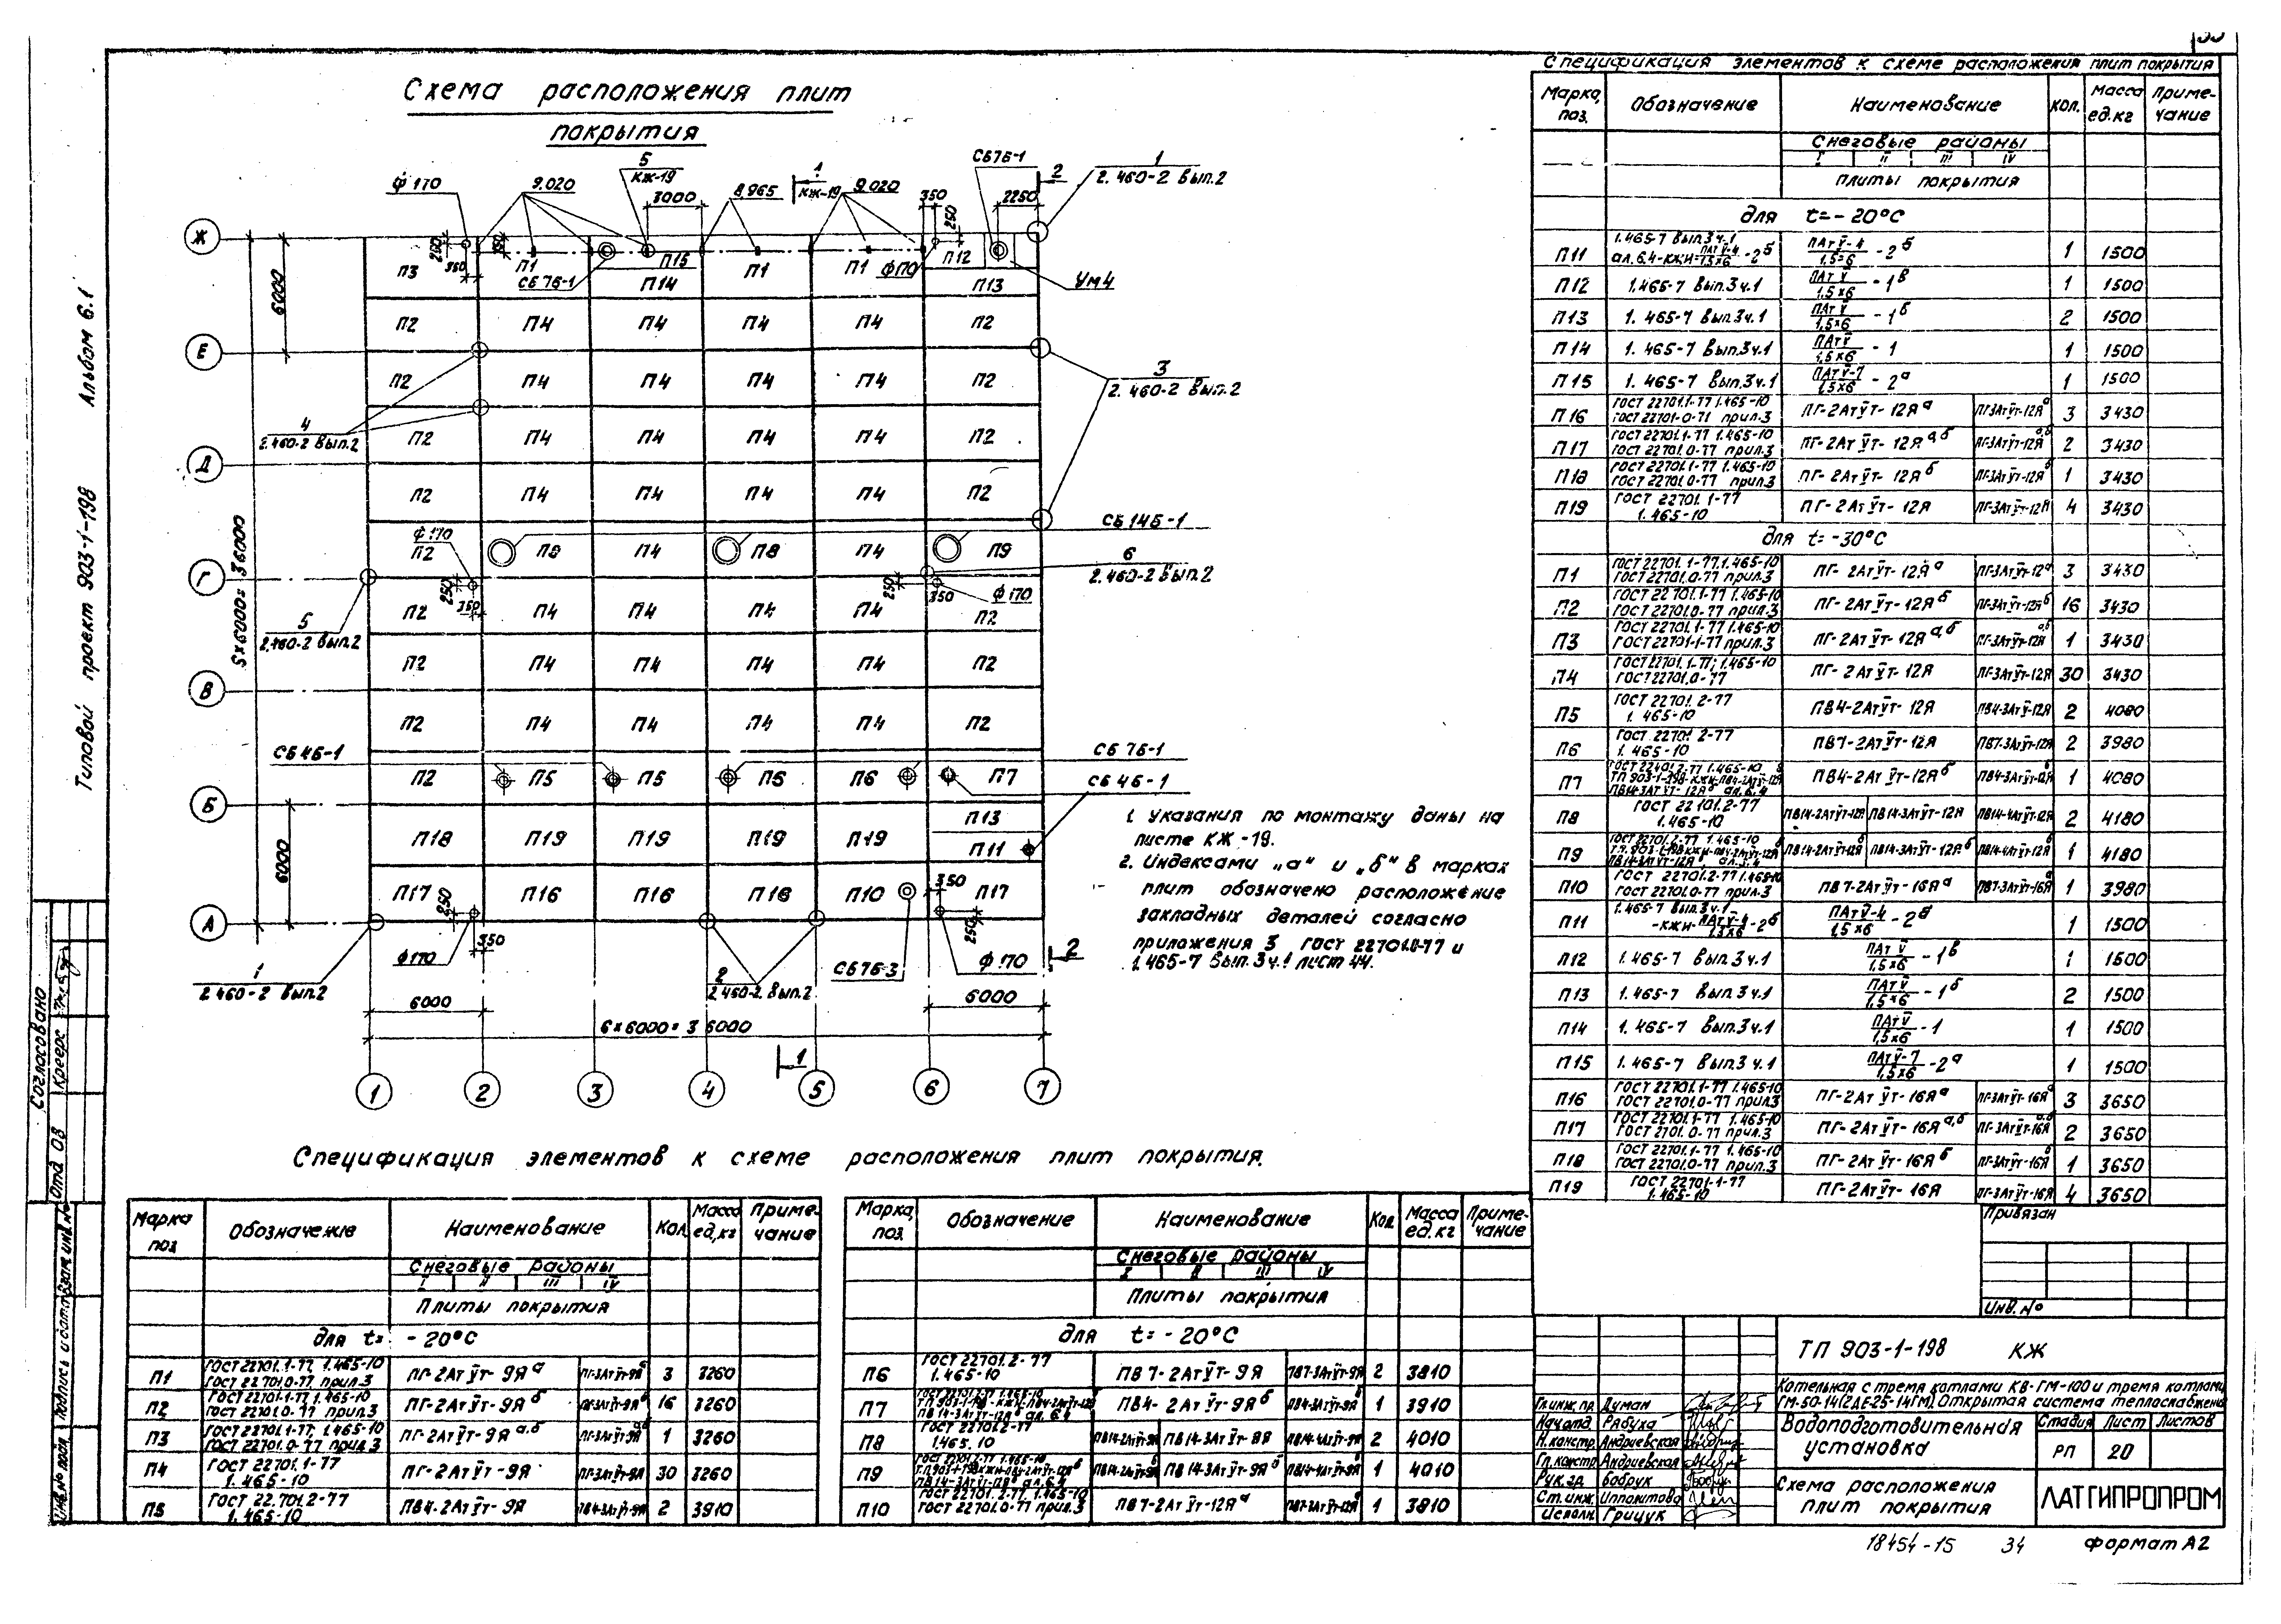 Схема расположения плит
покрытия
Ж
Е
Д
Г
В
Б
А
1
2
3
4
5
6
7
ф 170
9.020
5
КЖ-19
3000
8.965
1
КЖ-19
9.020
350
250
СБ7Б-1
2250
2
1
2.460-2 Вып.2
П3
П1
СБ 7Б-1
П15
П14
П1
П1
ф170
П12
П13
Ум4
П2 П4 П4 П4 П4 П2
П2 П4 П4 П4 П4 П2
П2 П4 П4 П4 П4 П2
П2 П4 П4 П4 П4 П2
П2 П4 П8 П4 П9
П2 П4 П4 П4 П4 П2
П2 П4 П4 П4 П4 П2
П2 П4 П4 П4 П4 П2
П2 П5 П5 П6 П7
П18 П19 П19 П19 П19 П13
П11
П17 П16 П16 П16 П10 П17
3
2.460-2 Вып.2
4
2.460-2 Вып.2
СБ 14Б-1
6
2.460-2 Вып.2
ф 170
ф 170
5
2.460-2 Вып.2
СБ 4Б-1
СБ 7Б-1
СБ 4Б-1
1
2.460-2 Вып.2
ф170
350
2
2.460-2 Вып.2
СБ7Б-3
ф 170
2
6000
6000
6×6000=36000
1
6000
6000
1. Указания по монтажу даны на
листе КЖ-19.
2. Индексами „а" и „б" в марках
плит обозначено расположение
закладных деталей согласно
приложения 3 ГОСТ 22701.0-77 и
1.465-7 Вып.3 ч.1 лист 44.
Спецификация элементов к схеме расположения плит покрытия
Марка, поз. Обозначение Наименование Кол. Масса ед.кг Примечание
Снеговые районы
I II III IV
плиты покрытия
для t=-20°С
П11 1 1500
П12 1.465-7 Вып.3 ч.1 ПАтV/1,5×6 -1в 1 1500
П13 1.465-7 Вып.3 ч.1 ПАтV/1,5×6 -1б 2 1500
П14 1.465-7 Вып.3 ч.1 ПАтV/1,5×6 -1 1 1500
П15 1.465-7 Вып.3 ч.1 ПАтV-7/1,5×6 -2а 1 1500
П16 ПГ-2АтVт-12Яа ПГ-3АтVт-12Яа 3 3430
П17 ГОСТ 22701.1-77 1.465-10 ГОСТ 22701.0-77 прил.3 ПГ-2АтVт-12Яа,б ПГ-3АтVт-12Яа,б 2 3430
П18 ГОСТ 22701.1-77 1.465-10 ГОСТ 22701.0-77 прил.3 ПГ-2АтVт-12Яб ПГ-3АтVт-12Яб 1 3430
П19 ГОСТ 22701.1-77 1.465-10 ПГ-2АтVт-12Я ПГ-3АтVт-12Я 4 3430
для t=-30°С
П1 ГОСТ 22701.1-77, 1.465-10 ГОСТ 22701.0-77 прил.3 ПГ-2АтVт-12Яа 3 3430
П2 ГОСТ 22701.1-77 1.465-10 ГОСТ 22701.0-77 прил.3 ПГ-2АтVт-12Яб ПГ-3АтVт-12Яб 16 3430
П3 ГОСТ 22701.1-77 1.465-10 ГОСТ 22701-1-77 прил.3 ПГ-2АтVт-12Яа,б ПГ-3АтVт-12Яа,б 1 3430
П4 ГОСТ 22701.1-77; 1.465-10 ГОСТ 22701.0-77 ПГ-2АтVт-12Я ПГ-3АтVт-12Я 30 3430
П5 ГОСТ 22701.2-77 1.465-10 ПВ4-2АтVт-12Я ПВ4-3АтVт-12Я 2 4080
П6 ГОСТ 22701.2-77 1.465-10 ПВ7-2АтVт-12Я ПВ7-3АтVт-12Я 2 3980
П7 ПВ4-2АтVт-12Яб ПВ4-3АтVт-12Яб 1 4080
П8 1.465-10 ПВ14-2АтVт-12Я ПВ14-3АтVт-12Я ПВ14-4АтVт-12Я 2 4180
П9 ПВ14-2АтVт-12Яб ПВ14-3АтVт-12Яб ПВ14-4АтVт-12Яб 1 4180
П10 ГОСТ 22701.2-77 1.465-10 ГОСТ 22701.0-77 прил.3 ПВ7-2АтVт-16Яа ПВ7-3АтVт-16Яа 1 3980
П11 1.465-7 Вып.3 ч.1 1 1500
П12 1.465-7 Вып.3 ч.1 ПАтV/1,5×6 -1в 1 1500
П13 1.465-7 Вып.3 ч.1 ПАтV/1,5×6 -1б 2 1500
П14 1.465-7 Вып.3 ч.1 ПАтV/1,5×6 -1 1 1500
П15 1.465-7 Вып.3 ч.1 ПАтV-7/1,5×6 -2а 1 1500
П16 ГОСТ 22701.1-77 1.465-10 ГОСТ 22701.0-77 прил.3 ПГ-2АтVт-16Яа ПГ-3АтVт-16Яа 3 3650
П17 ГОСТ 22701.1-77 1.465-10 ПГ-2АтVт-16Яа,б ПГ-3АтVт-16Яа,б 2 3650
П18 ГОСТ 22701.1-77 1.465-10 ГОСТ 22701.0-77 прил.3 ПГ-2АтVт-16Яб ПГ-3АтVт-16Яб 1 3650
П19 ГОСТ 22701-1-77 1.465-10 ПГ-2АтVт-16Я ПГ-3АтVт-16Я 4 3650
Спецификация элементов к схеме расположения плит покрытия.
Марка поз Обозначение Наименование Кол. Масса ед,кг Примечание
Снеговые районы
I II III IV
Плиты покрытия
для t= -20°С
П1 ГОСТ 22701.1-77, 1.465-10 ГОСТ 22701.0-77 прил.3 ПГ-2АтVт-9Яа 3 3260
П2 ГОСТ 22701.1-77 1.465-10 ГОСТ 22701.0-77 прил.3 ПГ-2АтVт-9Яб 16 3260
П3 ГОСТ 22701.1-77; 1.465-10 ГОСТ 22701.0-77 прил.3 ПГ-2АтVт-9Яа,б 1 3260
П4 ГОСТ 22701.1-77 1.465-10 ПГ-2АтVт-9Я ПГ-3АтVт-9Я 30 3260
П5 ГОСТ 22.701.2-77 1.465-10 ПВ4-2АтVт-9Я ПВ4-3АтVт-9Я 2 3910
Марка, поз. Обозначение Наименование Кол. Масса ед.кг Примечание
Снеговые районы
I II III IV
Плиты покрытия
для t=-20°С
П6 ГОСТ 22701.2-77 1.465-10 ПВ7-2АтVт-9Я ПВ7-3АтVт-9Я 2 3810
П7 ПВ4-2АтVт-9Яб ПВ4-3АтVт-9Яб 1 3910
П8 ГОСТ 22701.2-77 1.465.10 ПВ14-2АтVт-9Я ПВ14-3АтVт-9Я ПВ14-4АтVт-9Я 2 4010
П9 ПВ14-2АтVт-9Яб ПВ14-3АтVт-9Яб ПВ14-4АтVт-9Яб 1 4010
П10 ГОСТ 22701.2-77 1.465-10 ГОСТ 22701.0-77 прил.3 ПВ7-2АтVт-12Яа ПВ7-3АтVт-12Яа 1 3810
Привязан
Инв.№
ТП 903-1-198 КЖ
Котельная с тремя котлами КВ-ГМ-100 и тремя котлами
ГМ-50-14(2ДЕ-25-14ГМ). Открытая система теплоснабжения
Гл.инж.пр. Думан
Нач.отд. Рябуха
Н.констр. Андриевская
Гл.констр. Андриевская
Рук.гр. Бобрук
Ст.инж. Ипполитова
Исполн. Грицук
Водоподготовительная
установка
Стадия Лист Листов
РП 20
Схема расположения
плит покрытия
ЛАТГИПРОПРОМ
18454-15 34 Формат А2
Типовой проект 903-1-198 Альбом 6.1
Согласовано
Отд 08 Креерс
Инв.№ подл. Подпись и дата Взам.инв.№